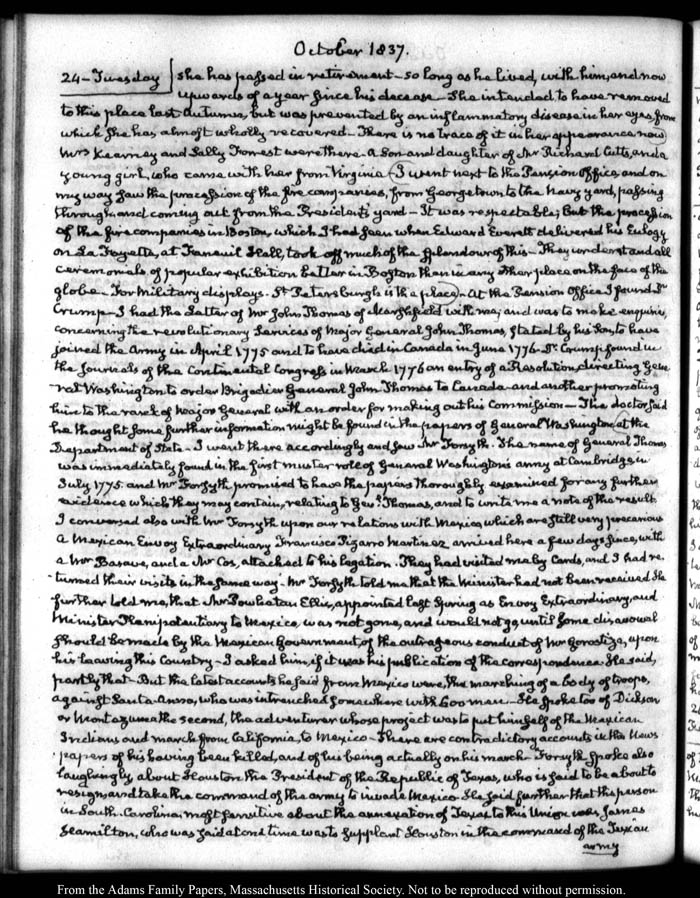 October 1837.
24-Tuesday
she has passed in retirement - so long as he lived, with him, and now
upwards of a year since his decease - She intended to have removed
to this place last Autumn, but was prevented by an inflammatory disease in her eyes, from
which she has almost wholly recovered - There is no trace of it in her appearance now
Mrs Kearney and Sally Forrest were there. A Son and daughter of Mr Richard Cutts, and a
young girl, who came with her from Virginia - I went next to the Pension Office, and on
my way saw the procession of the fire companies, from Georgetown to the Navy yard, passing
through and coming out from the President's yard - It was respectable; But the procession
of the fire companies in Boston, which I had seen when Edward Everett delivered his Eulogy
on La Fayette, at Faneuil Hall, took off much of the splendour of this - They understand all
ceremonials of popular exhibition better in Boston than in any other place on the face of the
globe - For Military displays - St Petersburgh is the place - At the Pension Office I found Dr
Crump - I had the Letter of Mr John Thomas of Marshfield with me, and was to make enquiries,
concerning the revolutionary services of Major General John Thomas, stated by his Son, to have
joined the Army in April 1775 and to have died in Canada in June 1776. Dr Crump found in
the Journals of the Continental Congress in March 1776 an entry of a Resolution, directing Gene
ral Washington to order Brigadier General John Thomas to Canada - and another promoting
him to the rank of Major General with an order for making out his Commission - The doctor said
he thought some further information might be found in the papers of General Washington, at the
Department of State - I went there accordingly and saw Mr Forsyth. The name of General Thomas
was immediately found in the first muster roll of General Washington's army at Cambridge in
July 1775. and Mr Forsyth promised to have the papers thoroughly examined for any further
evidence which they may contain, relating to Genl Thomas, and to write me a note of the result
I conversed also with Mr Forsyth upon our relations with Mexico, which are still very precarious
A Mexican Envoy Extraordinary Francisco Pizarro Martinez arrived here a few days since, with
a Mr Basave, and a Mr Cos, attached to his legation. They had visited me by Cards, and I had re-
turned their visits in the same way. Mr Forsyth told me that the Minister had not been received. He
further told me, that Mr Powhatan Ellis, appointed last Spring as Envoy Extraordinary, and
Minister Plenipotentiary to Mexico, was not gone, and would not go, until some disavowal
should be made by the Mexican Government, of the outrageous conduct of Mr Gorostiza, upon
his leaving this Country - I asked him, if it was his publication of the correspondence. He said,
partly that - But the latest accounts he said from Mexico were, the marching of a body of troops,
against Santa-Anna, who was intrenched somewhere with 600 men - He spoke too of Dickson
or Montezuma the second, the adventurer whose project was to put himself of the Mexican
Indians and march from California, to Mexico - There are contradictory accounts in the News
papers of his having been killed, and of his being actually on his march - Forsyth spoke also
laughingly, about Houston the President of the Republic of Texas, who is said to be about to
resign and take the command of the army to invade Mexico. He said further that the person
in South-Carolina most sensitive about the annexation of Texas to this Union was James
Hamilton, who was said at one time was to supplant Houston in the command of the Texian
army
From the Adams Family Papers, Massachusetts Historical Society. Not to be reproduced without permission.